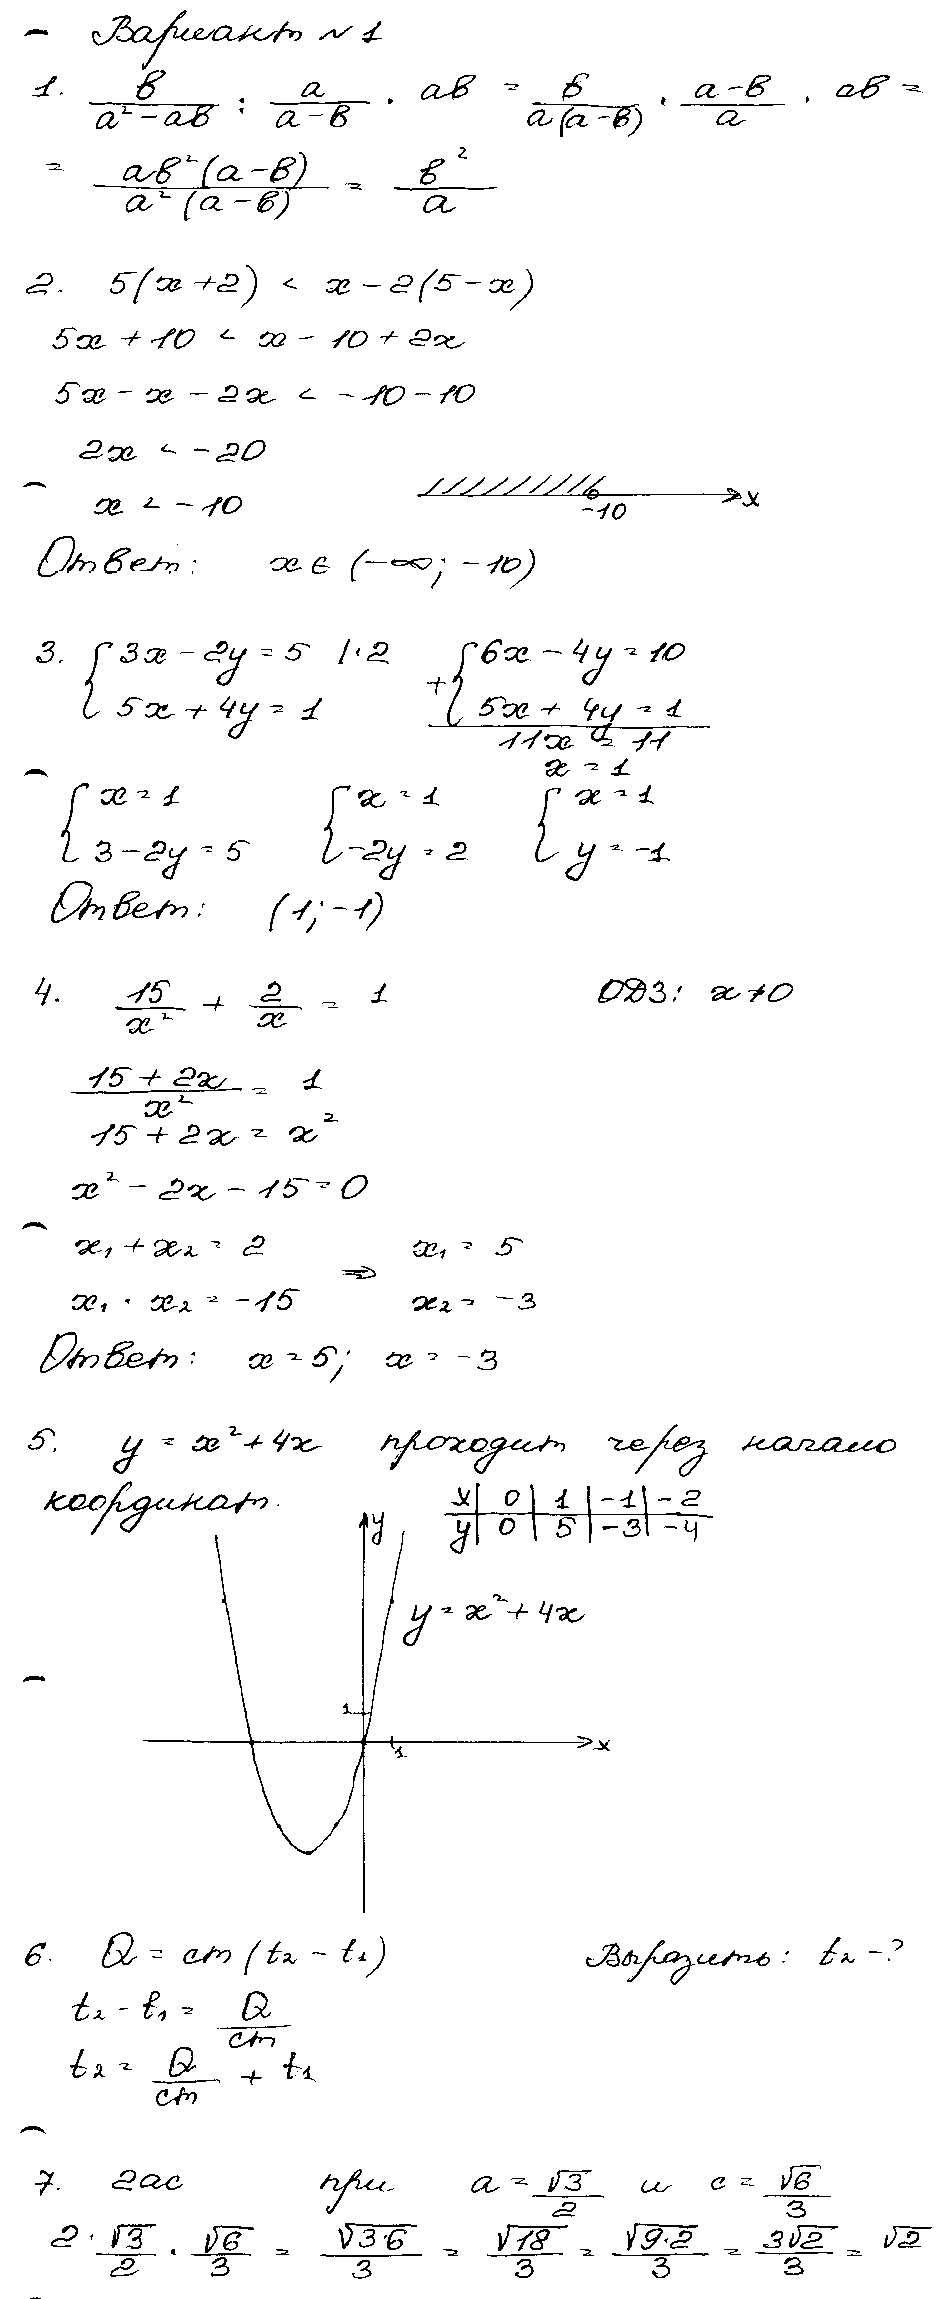 Вариант №1
1. в/(a²-aв) : a/(a-в) · aв = в/(a(a-в)) · (a-в)/a · aв =
= aв²(a-в)/(a²(a-в)) = в²/a
2. 5(x+2) < x-2(5-x)
5x+10 < x-10+2x
5x-x-2x < -10-10
2x < -20
x < -10
-10 x
Ответ: x∈(-∞;-10)
3. {3x-2y=5 |·2 + {6x-4y=10
5x+4y=1 5x+4y=1
11x=11
x=1
{x=1 {x=1 {x=1
3-2y=5 -2y=2 y=-1
Ответ: (1;-1)
4. 15/x² + 2/x = 1 ОДЗ: x≠0
(15+2x)/x² = 1
15+2x=x²
x²-2x-15=0
x₁+x₂=2 ⇒ x₁=5
x₁·x₂=-15 x₂=-3
Ответ: x=5; x=-3
5. y=x²+4x проходит через начало
координат.
x | 0 | 1 | -1 | -2
y | 0 | 5 | -3 | -4
y
y=x²+4x
1
1 x
6. Q=cm(t₂-t₁) Выразить: t₂-?
t₂-t₁=Q/cm
t₂=Q/cm+t₁
7. 2ac при a=√3/2 и c=√6/3
2·√3/2·√6/3=√3·6/3=√18/3=√9·2/3=3√2/3=√2